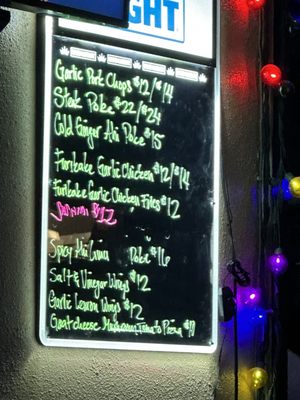 GHT
Garlic Pork Chops $12/$14
Steak Poke $22/$24
Cold Ginger Ahi Poke $15
Furikake Garlic Chicken $12/$14
Furikake Garlic Chicken Fries $12
$12
Spicy Ahi Poke $16
Salt & Vinegar Wings $12
Garlic Lemon Wings $12
Goat cheese Mushroom Tomato Pizza